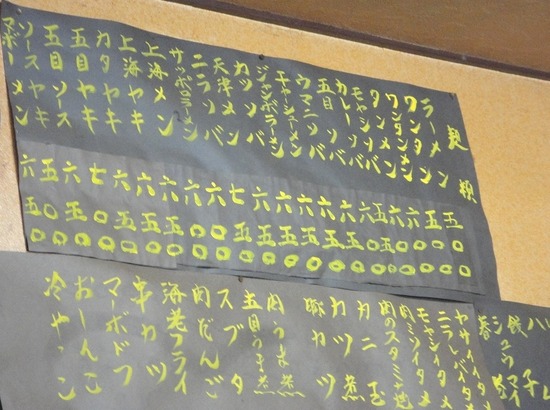 麺類
ラーメン 五〇〇
ワンタン 五〇〇
ワンタンメン 六五〇
タンメン 六〇〇
モヤシソバ 五五〇
カレーソバ 六〇〇
五目ソバ 六五〇
ウマニソバ 六五〇
チャーシューメン 六五〇
ジャンボラーメン 六五〇
カツソバ 六五〇
天津メン 七五〇
ニラソバ 六〇〇
サッポロラーメン 六〇〇
上海メン 六五〇
上海ヤキ 六五〇
カタヤキ 六五〇
五目ヤキ 七〇〇
五目ソース 六五〇
ソースヤキ 五〇〇
マーボーメン 六五〇
ヤサイイタメ
ニラレバイタメ
モヤシイタメ
肉ミソイタメ
肉のスタミナ
カニ玉
カツ煮
豚カツ
肉うま煮
五目うま煮
スブタ
肉だんご
海老フライ
串カツ
マーボドフ
おしんこ
冷やっこ